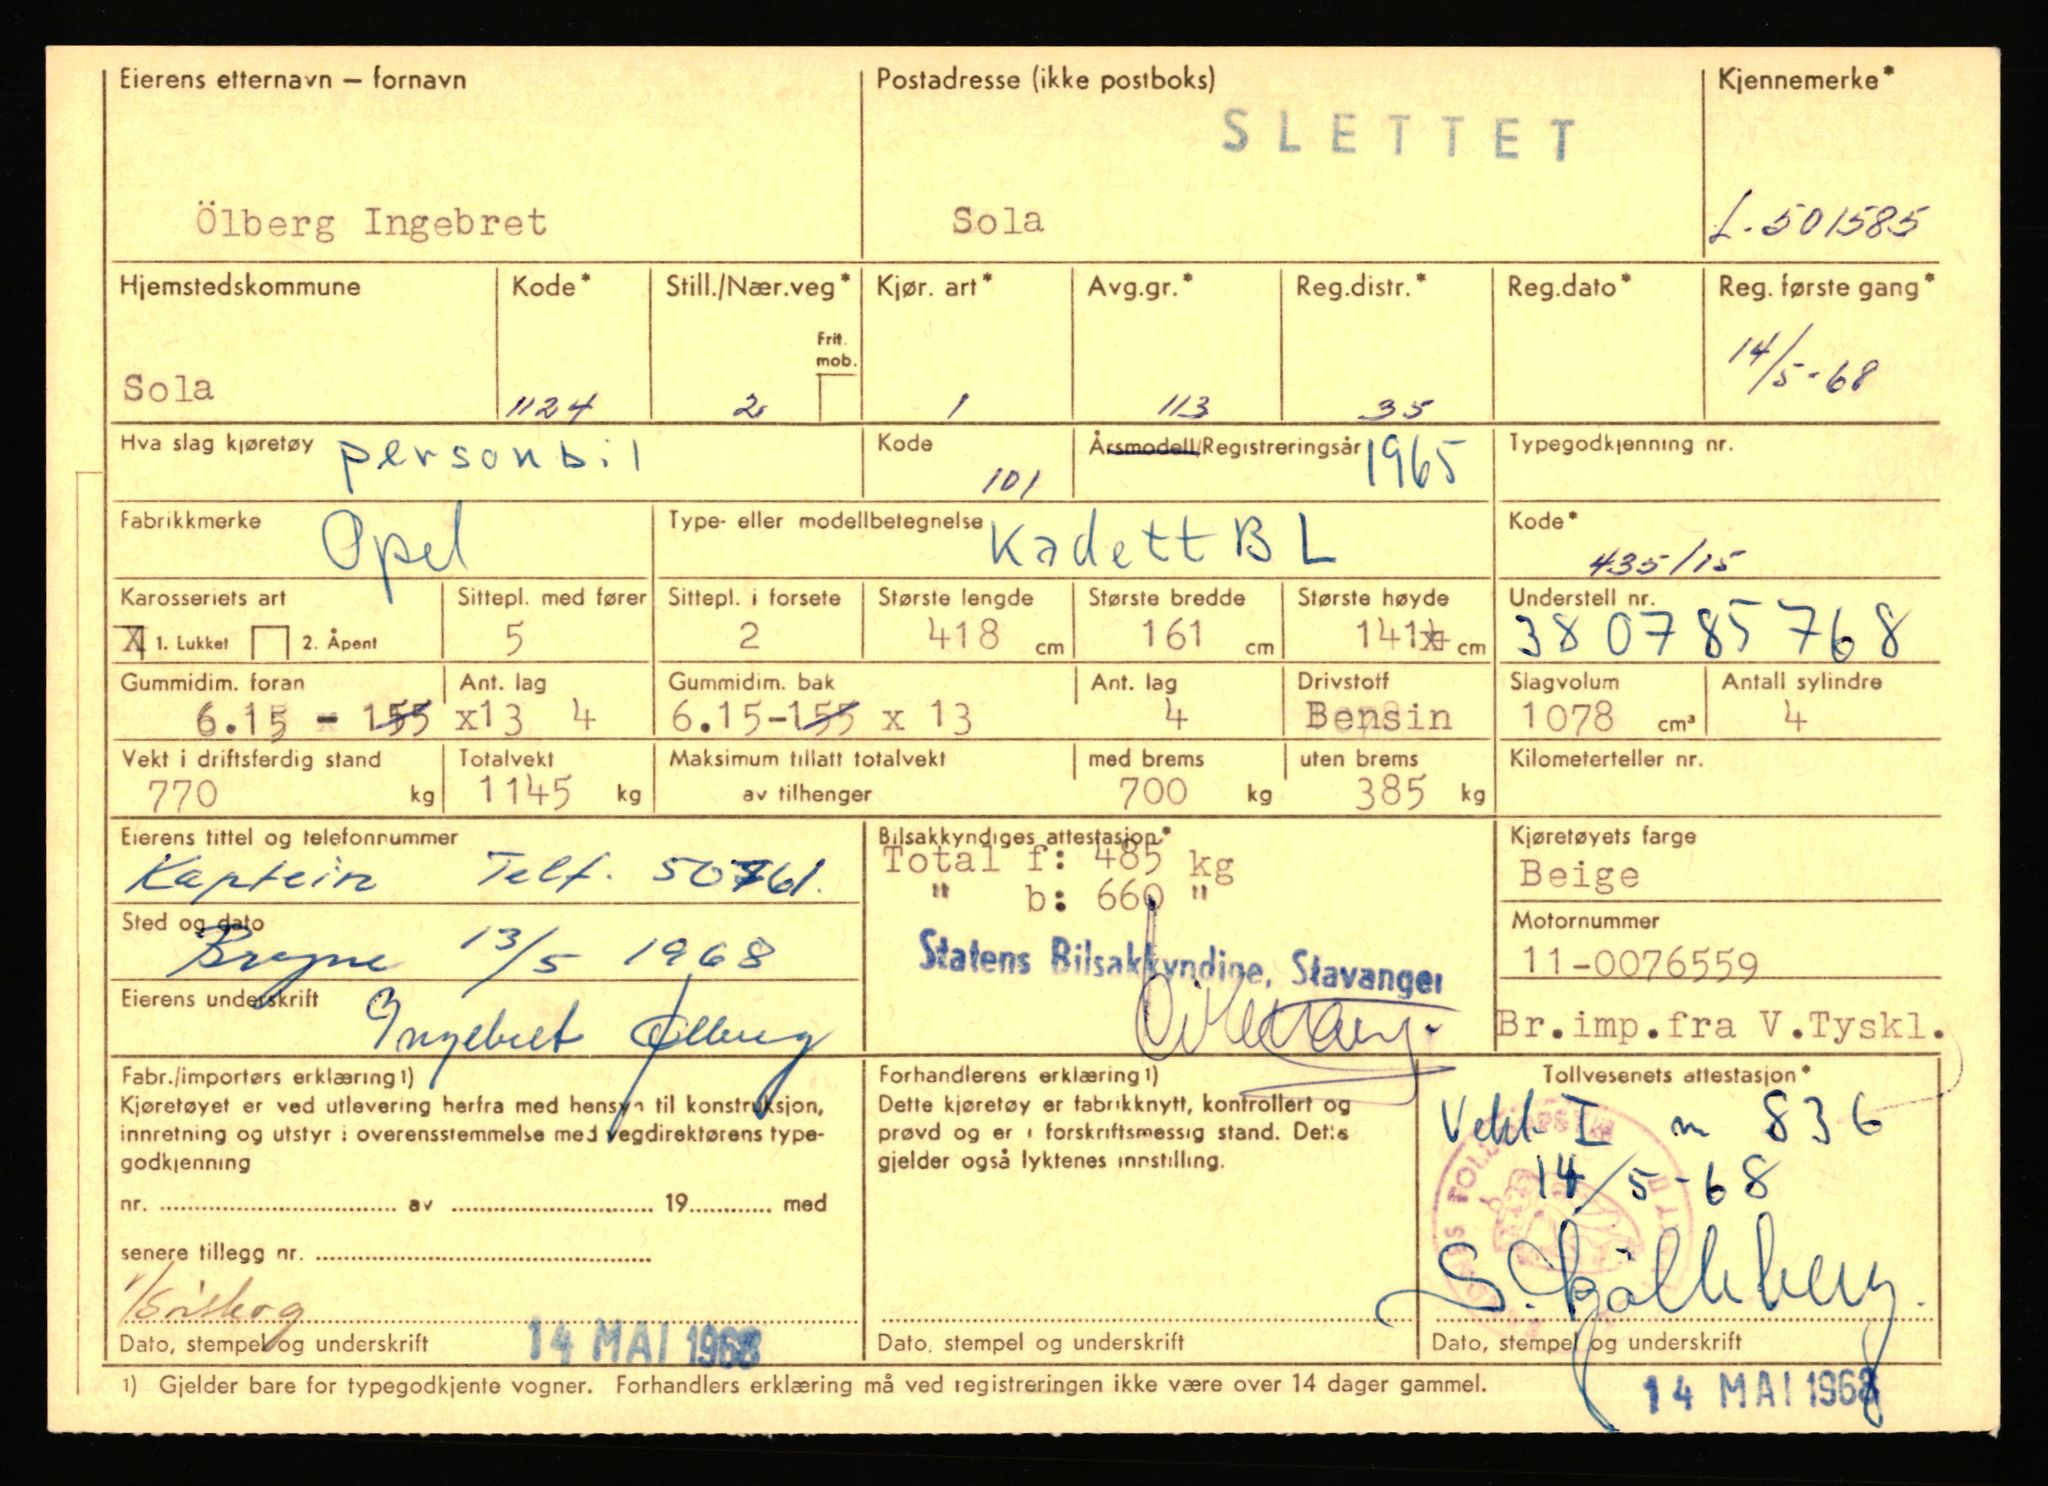 Eierens etternavn — fornavn
Postadresse (ikke postboks)
Kjennemerke*
SLETTET
Ölberg Ingebret
Sola
L-501585
Hjemstedskommune
Kode*
Still./Nær.veg*
Kjør. art*
Avg.gr.*
Reg.distr.*
Reg.dato*
Reg. første gang*
Frit. mob.
Sola
1124
2
1
113
35
14/5-68
Hva slag kjøretøy personbil
Kode 101
Årsmodell/Registreringsår 1965
Typegodkjenning nr.
Fabrikkmerke Opel
Type- eller modellbetegnelse Kadett B L
Kode*
435/15
Karosseriets art
Sittepl. med fører
Sittepl. i forsete
Største lengde
Største bredde
Største høyde
Understell nr.
X 1. Lukket 2. Åpent
5
2
418 cm
161 cm
141 cm
380785768
Gummidim. foran
Ant. lag
Gummidim. bak
Ant. lag
Drivstoff
Slagvolum
Antall sylindre
6.15 - 155 x13 4
6.15-155 x 13
4
Bensin
1078 cm³
4
Vekt i driftsferdig stand
Totalvekt
Maksimum tillatt totalvekt
med brems
uten brems
Kilometerteller nr.
770 kg
1145 kg
av tilhenger
700 kg
385 kg
Eierens tittel og telefonnummer
Bilsakkyndiges attestasjon*
Kjøretøyets farge
Kaptein Telf. 50761.
Total f: 485 kg
" b: 660 "
Beige
Sted og dato
Bryne 13/5 1968
Statens Bilsakkyndige, Stavanger
Motornummer
11-0076559
Eierens underskrift
Ingebret Ølberg
Br.imp.fra V.Tyskl.
Fabr./importørs erklæring 1)
Kjøretøyet er ved utlevering herfra med hensyn til konstruksjon,
innretning og utstyr i overensstemmelse med vegdirektørens type-
godkjenning
nr. .................... av .................... 19............ med
senere tillegg nr. ....................
Forhandlerens erklæring 1)
Dette kjøretøy er fabrikknytt, kontrollert og
prøvd og er i forskriftsmessig stand. Dette
gjelder også lyktenes innstilling.
Tollvesenets attestasjon*
Vekt I n 836
14/5-68
Dato, stempel og underskrift
14 MAI 1968
Dato, stempel og underskrift
Dato, stempel og underskrift
14 MAI 1968
1) Gjelder bare for typegodkjente vogner. Forhandlers erklæring må ved registreringen ikke være over 14 dager gammel.